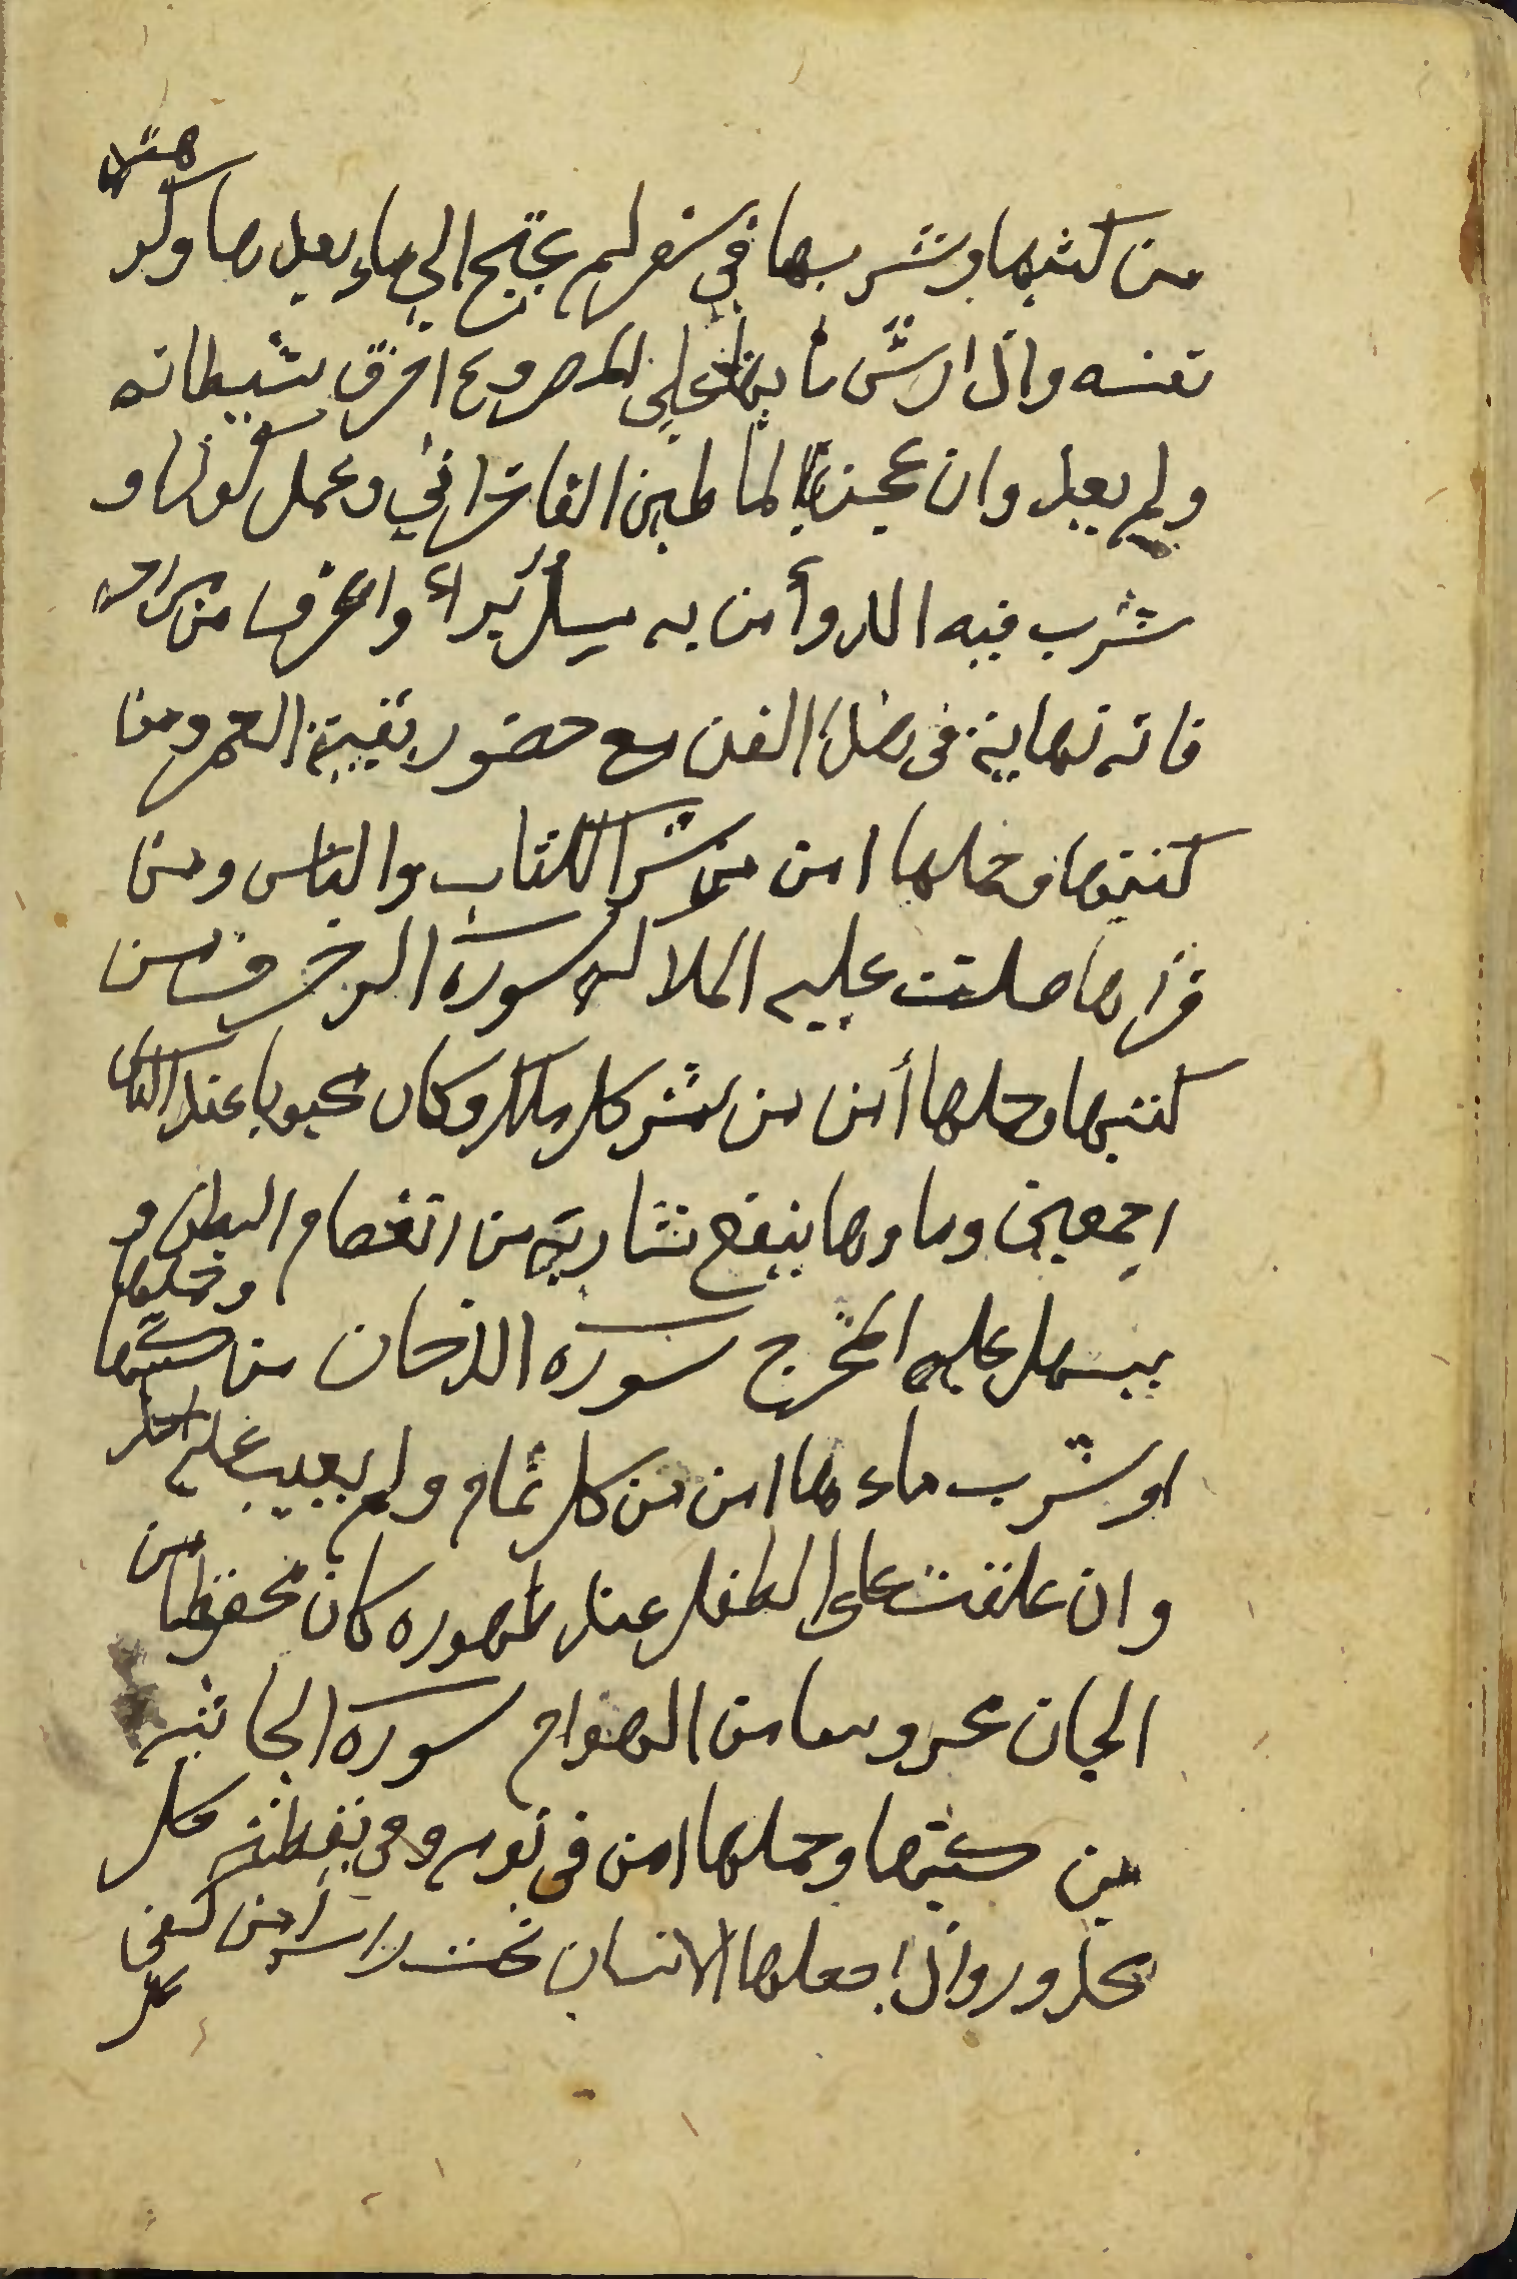 من كتبها وشربها في سفر لم يحتج الي ماء بعدها وكر هتى
نفسه واذا رش مايها على المصروع احرق شيطانه
ولم يعد وان عجن بالماء طين الفاخراني وعمل كوزا و
شرب فيه الدوا من به براء واعرف من
فانه نهاية في هذا الفن مع حضور بقية العمر ومن
كتبها وحملها امن من شر الكتاب والناس ومن
قراها صلت عليه الملاكه سورة الزخرف من
كتبها وحملها أمن من شر كل ملك وكان محبوبا عند الناس
اجمعين وماوها ينفع شاربه من انفصام البطن و
يسهل عليه المخرج سورة الدخان من كتبها وحملها
او شرب ماءها امن من كل نمام ولم يعيب عليه احد
وان علقت على الطفل عند ظهوره كان محفوظا من
الجان محروسا من الهوام سورة الجاثيه
من كتبها وحملها امن في نومه وفي يقظته كل
محذور واذا جعلها الانسان تحت راسه أمن كفى
كل